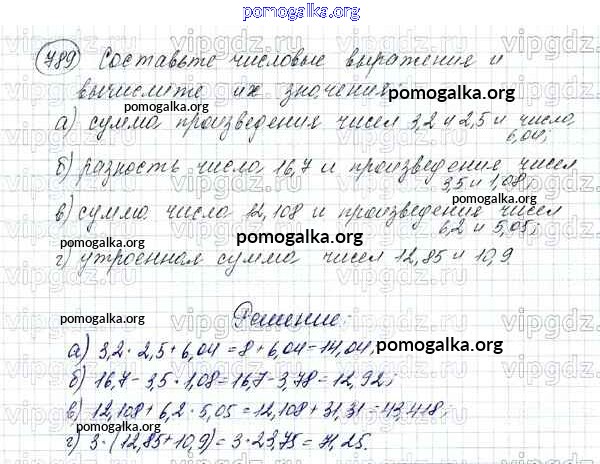 pomogalka.org
789 Составьте числовые выражения и
вычислите их значения:
pomogalka.org
а) сумма произведения чисел 3,2 и 2,5 и числа
6,04;
б) разность числа 16,7 и произведение чисел
3,5 и 1,08;
pomogalka.org
в) сумма числа 12,108 и произведение чисел
6,2 и 5,05;
pomogalka.org
г) утроенная сумма чисел 12,85 и 10,9.
pomogalka.org
Решение:
а) 3,2 · 2,5 + 6,04 = 8 + 6,04 = 14,04;
pomogalka.org
б) 16,7 - 3,5 · 1,08 = 16,7 - 3,78 = 12,92;
в) 12,108 + 6,2 · 5,05 = 12,108 + 31,31 = 43,418;
г) 3 · (12,85 + 10,9) = 3 · 23,75 = 71,25.
pomogalka.org